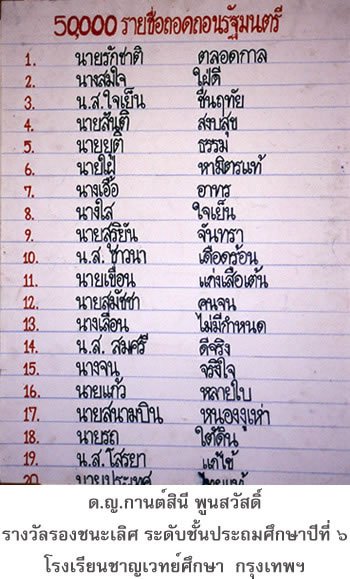 50,000 รายชื่อถอดถอนรัฐมนตรี
1. นายรักชาติ ตลอดกาล
2. นางสมใจ ใฝ่ดี
3. น.ส.ใจเย็น ชื่นฤทัย
4. นายสันติ สงบสุข
5. นายยุติ ธรรม
6. นายใฝ่ หามิตรแท้
7. นางเอื้อ อาทร
8. นางใส ใจเย็น
9. นายสุริยัน จันทรา
10. น.ส. ชาวนา เดือดร้อน
11. นายเขื่อน แก่งเสือเต้น
12. นายสมัชชา คนจน
13. นางเลื่อน ไม่มีกำหนด
14. น.ส. สมศรี ดีจริง
15. นางจน จริงใจ
16. นายแก้ว หลายใบ
17. นายสนามบิน หนองงูเห่า
18. นายรถ ใต้ดิน
19. น.ส.โสรยา แก้ไข้
20. นายประเทศ ไทยแท้
ด.ญ.กานต์สินี พูนสวัสดิ์
รางวัลรองชนะเลิศ ระดับชั้นประถมศึกษาปีที่ ๖
โรงเรียนชาญเวทย์ศึกษา กรุงเทพฯ